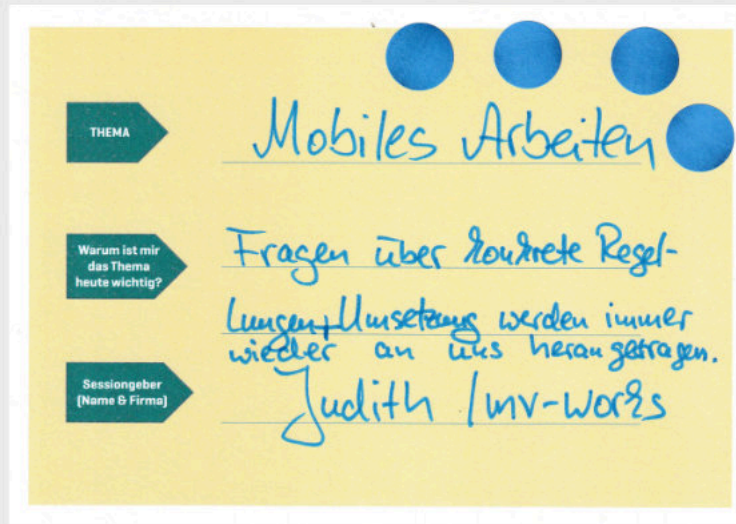 THEMA
Mobiles Arbeiten
Warum ist mir
das Thema
heute wichtig?
Fragen über konkrete Regel-
lungen + Umsetzung werden immer
wieder an uns herangetragen.
Sessiongeber
(Name & Firma)
Judith / mv-works